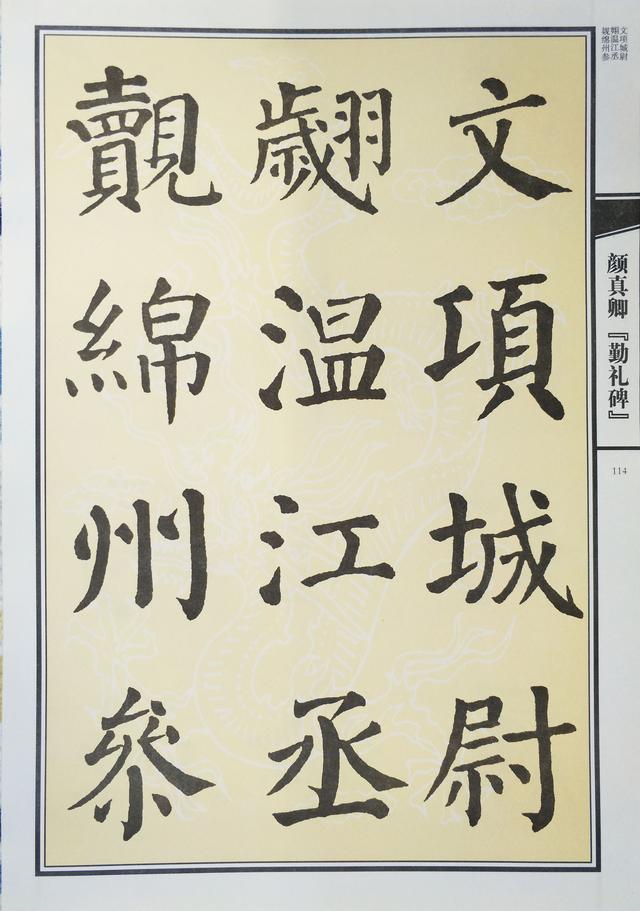 文项城尉
翙温江丞
觌绵州参
颜真卿『勤礼碑』
114
文項城尉
翽温江丞
覿綿州參